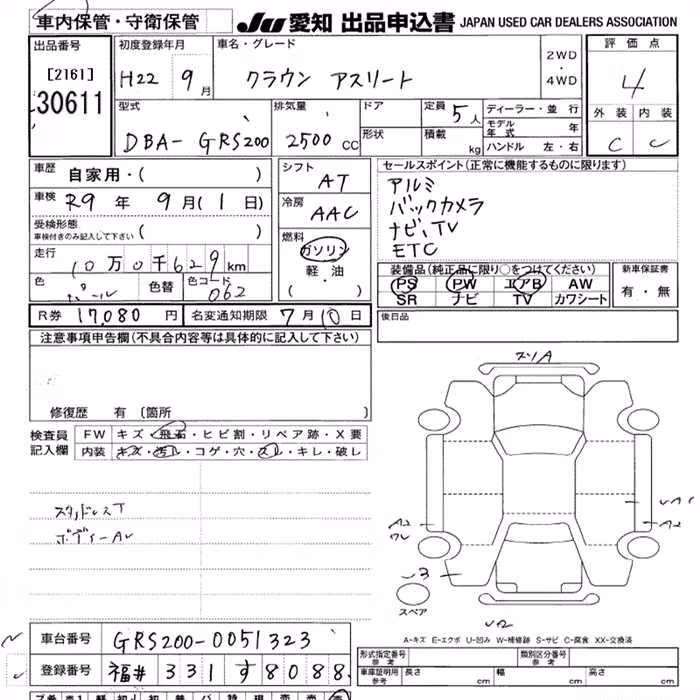 車内保管・守衛保管 JU 愛知 出品申込書 JAPAN USED CAR DEALERS ASSOCIATION
出品番号 [2161] 30611
初度登録年月 H22 9月
車名・グレード クラウン アスリート
2WD・4WD
評価点 4
外装 内装
C C
型式 DBA-GRS200
排気量 2500CC
ドア
形状
定員 5人
積載 kg
ディーラー・並行
モデル年式 年
ハンドル 左・右
車歴 自家用・( )
車検 R9年 9月(1日)
受検形態 車検付きのみ記入して下さい ( )
走行 10万0千629km
色 パール 色替 色コード 062
シフト AT
冷房 AAC
燃料 ガソリン・軽油・( )
セールスポイント(正常に機能するものに限ります)
アルミ
バックカメラ
ナビ、TV
ETC
装備品(純正品に限り○をつけてください)
PS PW エアB AW
SR ナビ TV カワシート
新車保証書 有・無
R券 17,080円 名変通知期限 7月10日
後日品
注意事項申告欄(不具合内容等は具体的に記入して下さい)
修復歴 有 [箇所 ]
検査員記入欄
FW キズ・飛石・ヒビ割・リペア跡・X要
内装 キズ・汚レ・コゲ・穴・スレ・キレ・破レ
スタッドレスT
ボディーAU
スリA
A2
UA1
A2
U3
U2
スペア
A-キズ E-エクボ U-凹み W-補修跡 S-サビ C-腐食 XX-交換済
車台番号 GRS200-0051323
登録番号 福井 331 す 8088
形式指定番号 参考
類別区分番号 参考
車庫証明用 参考 長さ cm 幅 cm 高さ cm